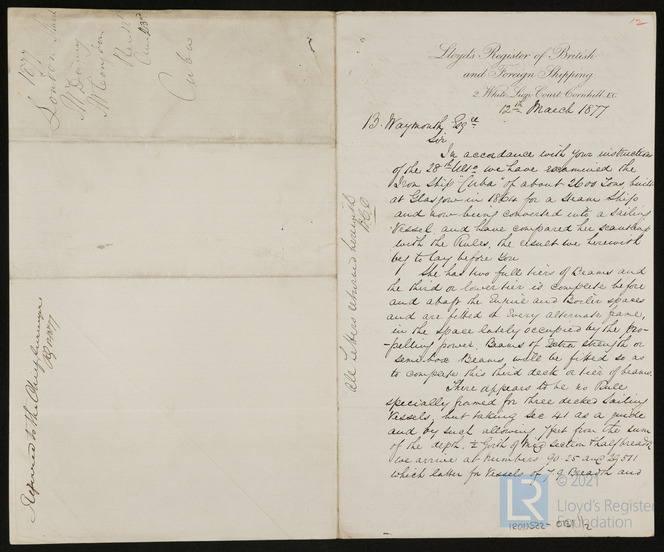 1877
London
Mr Denny
Mr Congdon
Cuba
Referred to the Chief Surveyor
All Letters returned herewith
12
Lloyd's Register of British
and Foreign Shipping
2. White Lion Court, Cornhill, E.C.
12th March 1877
B. Waymouth, Esqre
Sir
In accordance with your instructions
of the 28th Ulto we have examined the
Iron Ship "Cuba" of about 2600 Tons, built
at Glasgow in 1864 for a Steam Ship
and now being converted into a Sailing
Vessel, and have compared her scantling
with the Rules, the result we herewith
beg to lay before you
She has two full tiers of Beams and
the third or lower tier is complete before
and abaft the Engine and Boiler spaces
and are fitted at every alternate frame,
in the space lately occupied by the pro-
-pelling power. Beams of Extra strength or
semi-box Beams will be fitted so as
to complete this third deck or tier of beams.
There appears to be no Rule
specially framed for three decked Sailing
Vessels, but taking Sec 41 as a guide
and by such allowing 7feet from the sum
of the depth, ½ Girth of Mid Section & half breadth
we arrive at numbers 90.25 and 29511
which latter for Vessels of 7.9 Breadth and
LR
© 2021
Lloyd's Register
Foundation